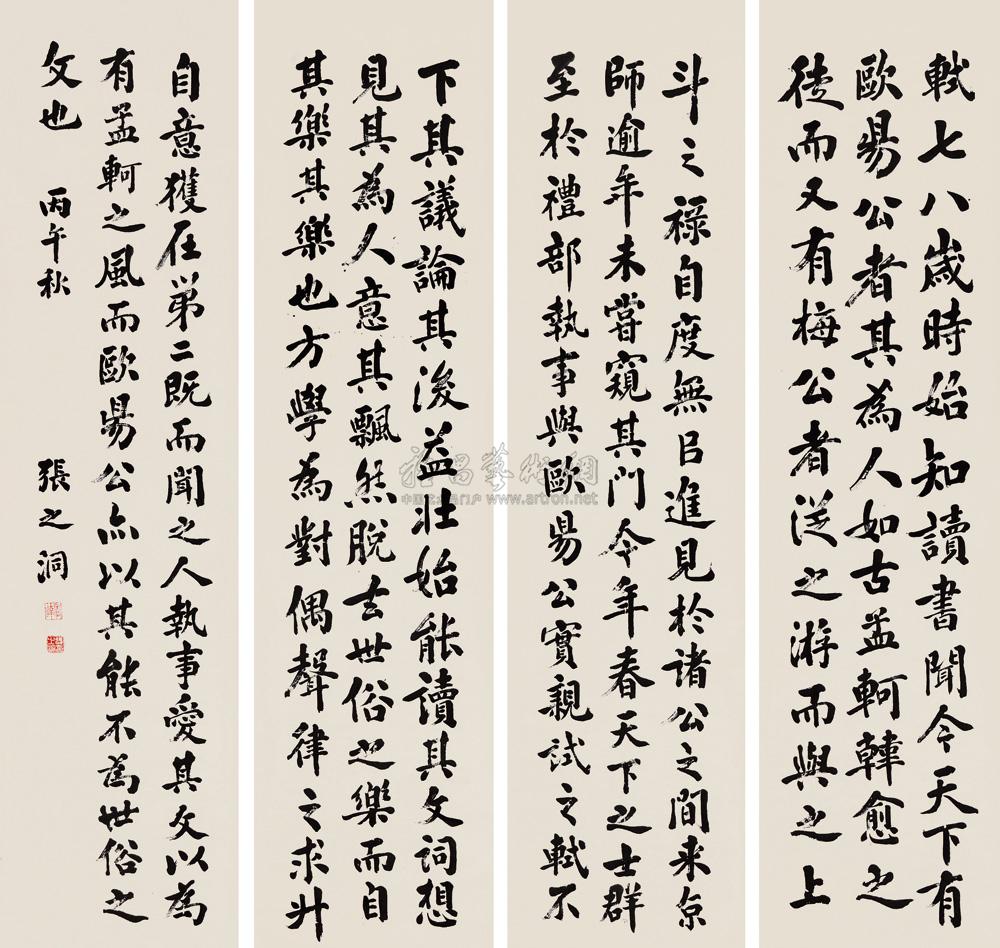 軾七八歲時始知讀書聞今天下有
歐昜公者其為人如古孟軻韓愈之
徒而又有梅公者從之游而與之上
下其議論其後益壯始能讀其文詞想
見其為人意其飄然脫去世俗之樂而自
其樂其樂也方學為對偶聲律之求升
斗之祿自度無㠯進見於諸公之間來京
師逾年未嘗窺其門今年春天下之士群
至於禮部執事與歐昜公實親試之軾不
自意獲在第二既而聞之人執事愛其文以為
有孟軻之風而歐昜公亦以其能不為世俗之
文也 丙午秋 張之洞
雅昌藝術網
中国艺术品门户 www.artron.net